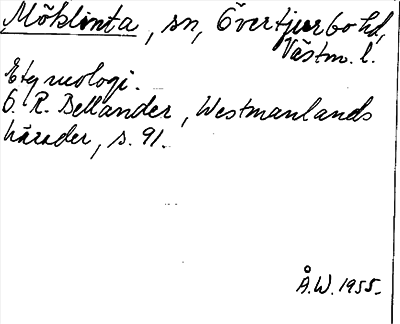 Möklinta, sn, Övertjurbo hd,
Västm. l.
Etymologi.
O. R. Bellander, Westmanlands
härader, s. 91.
Å.W. 1955.